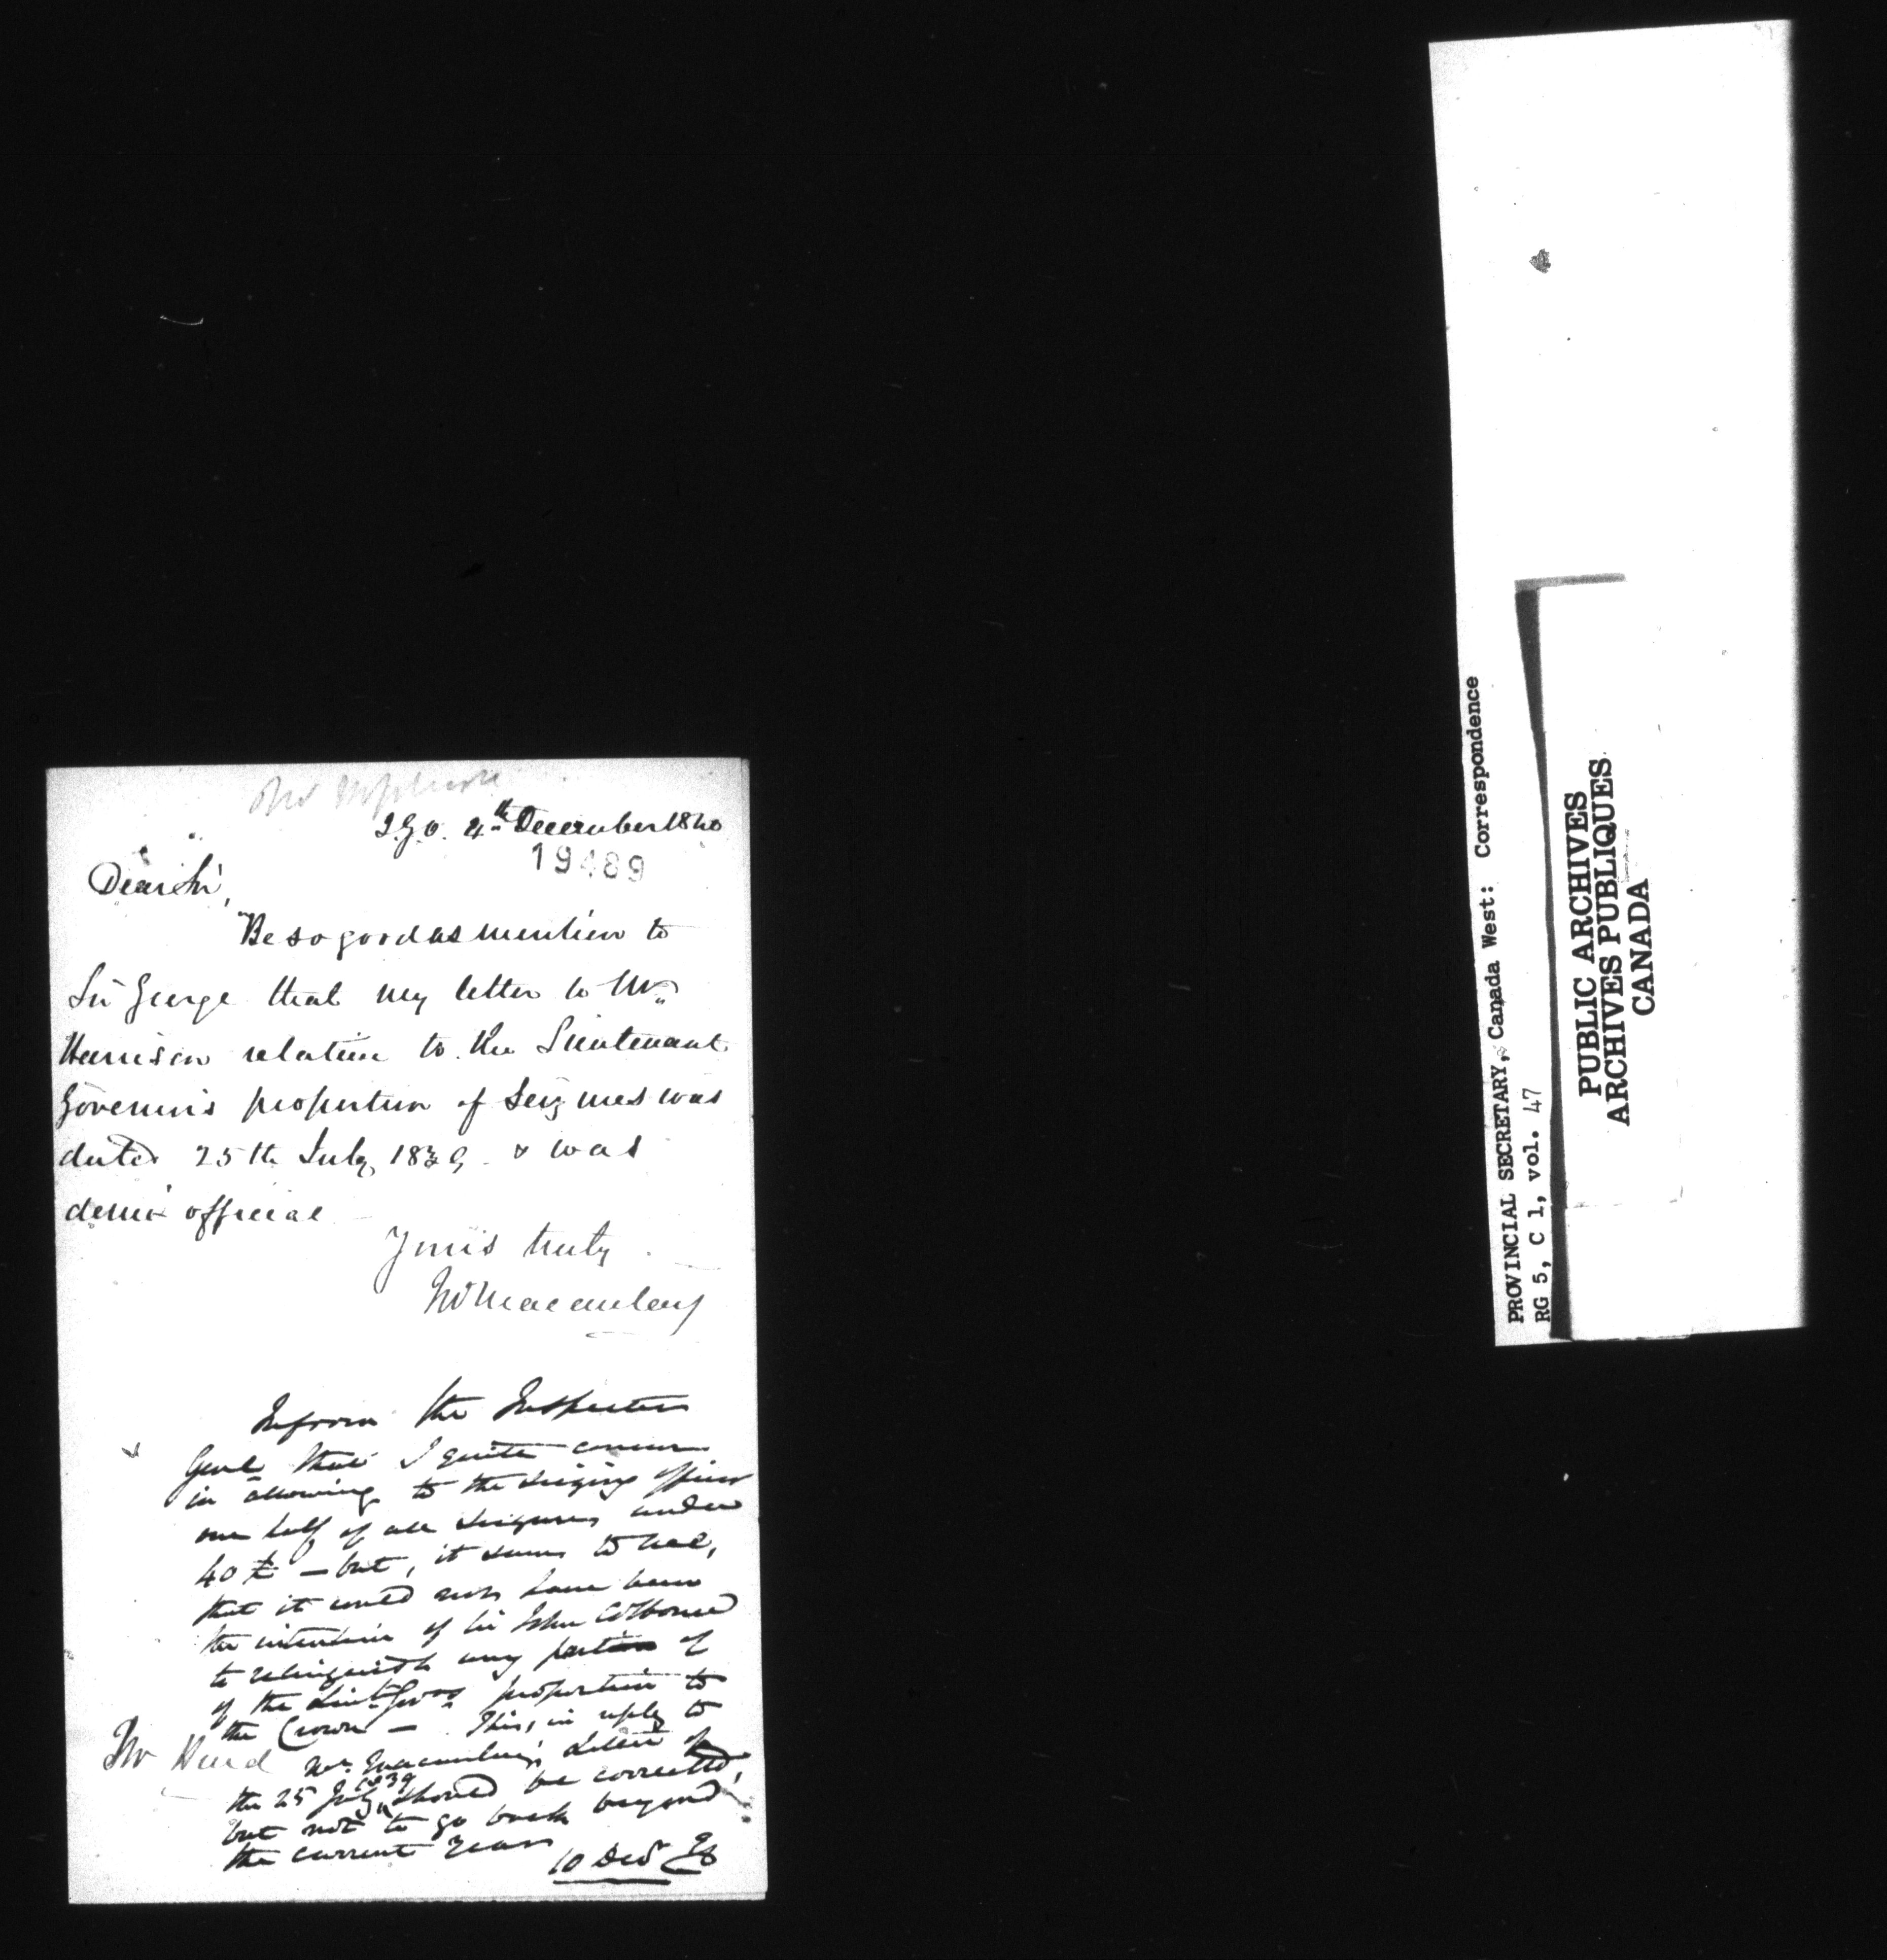 I.G.O. 4th December 1840
19489
Dear Sir,
Be so good as mention to
Sir George that my letter to Mr.
Harrison relative to the Lieutenant
Governor's proportion of Seizures was
dated 25th July, 1839 & was
demi official
Yours truly
Jno Macaulay
Inform the Inspector
Genl that I quite concur
in allowing to the seizing officer
one half of all seizures under
40 £ — but, it seems to me,
that it could not have been
the intention of Sir John Colborne
to relinquish any portion of
of the Lieut Govrs proportion to
the Crown — This, in reply to
Mr. Macaulay's letter of
the 25 July 1839 should be corrected,
but not to go back beyond
the current year
10 Decr
Mr Hurd
PROVINCIAL SECRETARY, Canada West: Correspondence
RG 5, C 1, vol. 47
PUBLIC ARCHIVES
ARCHIVES PUBLIQUES
CANADA